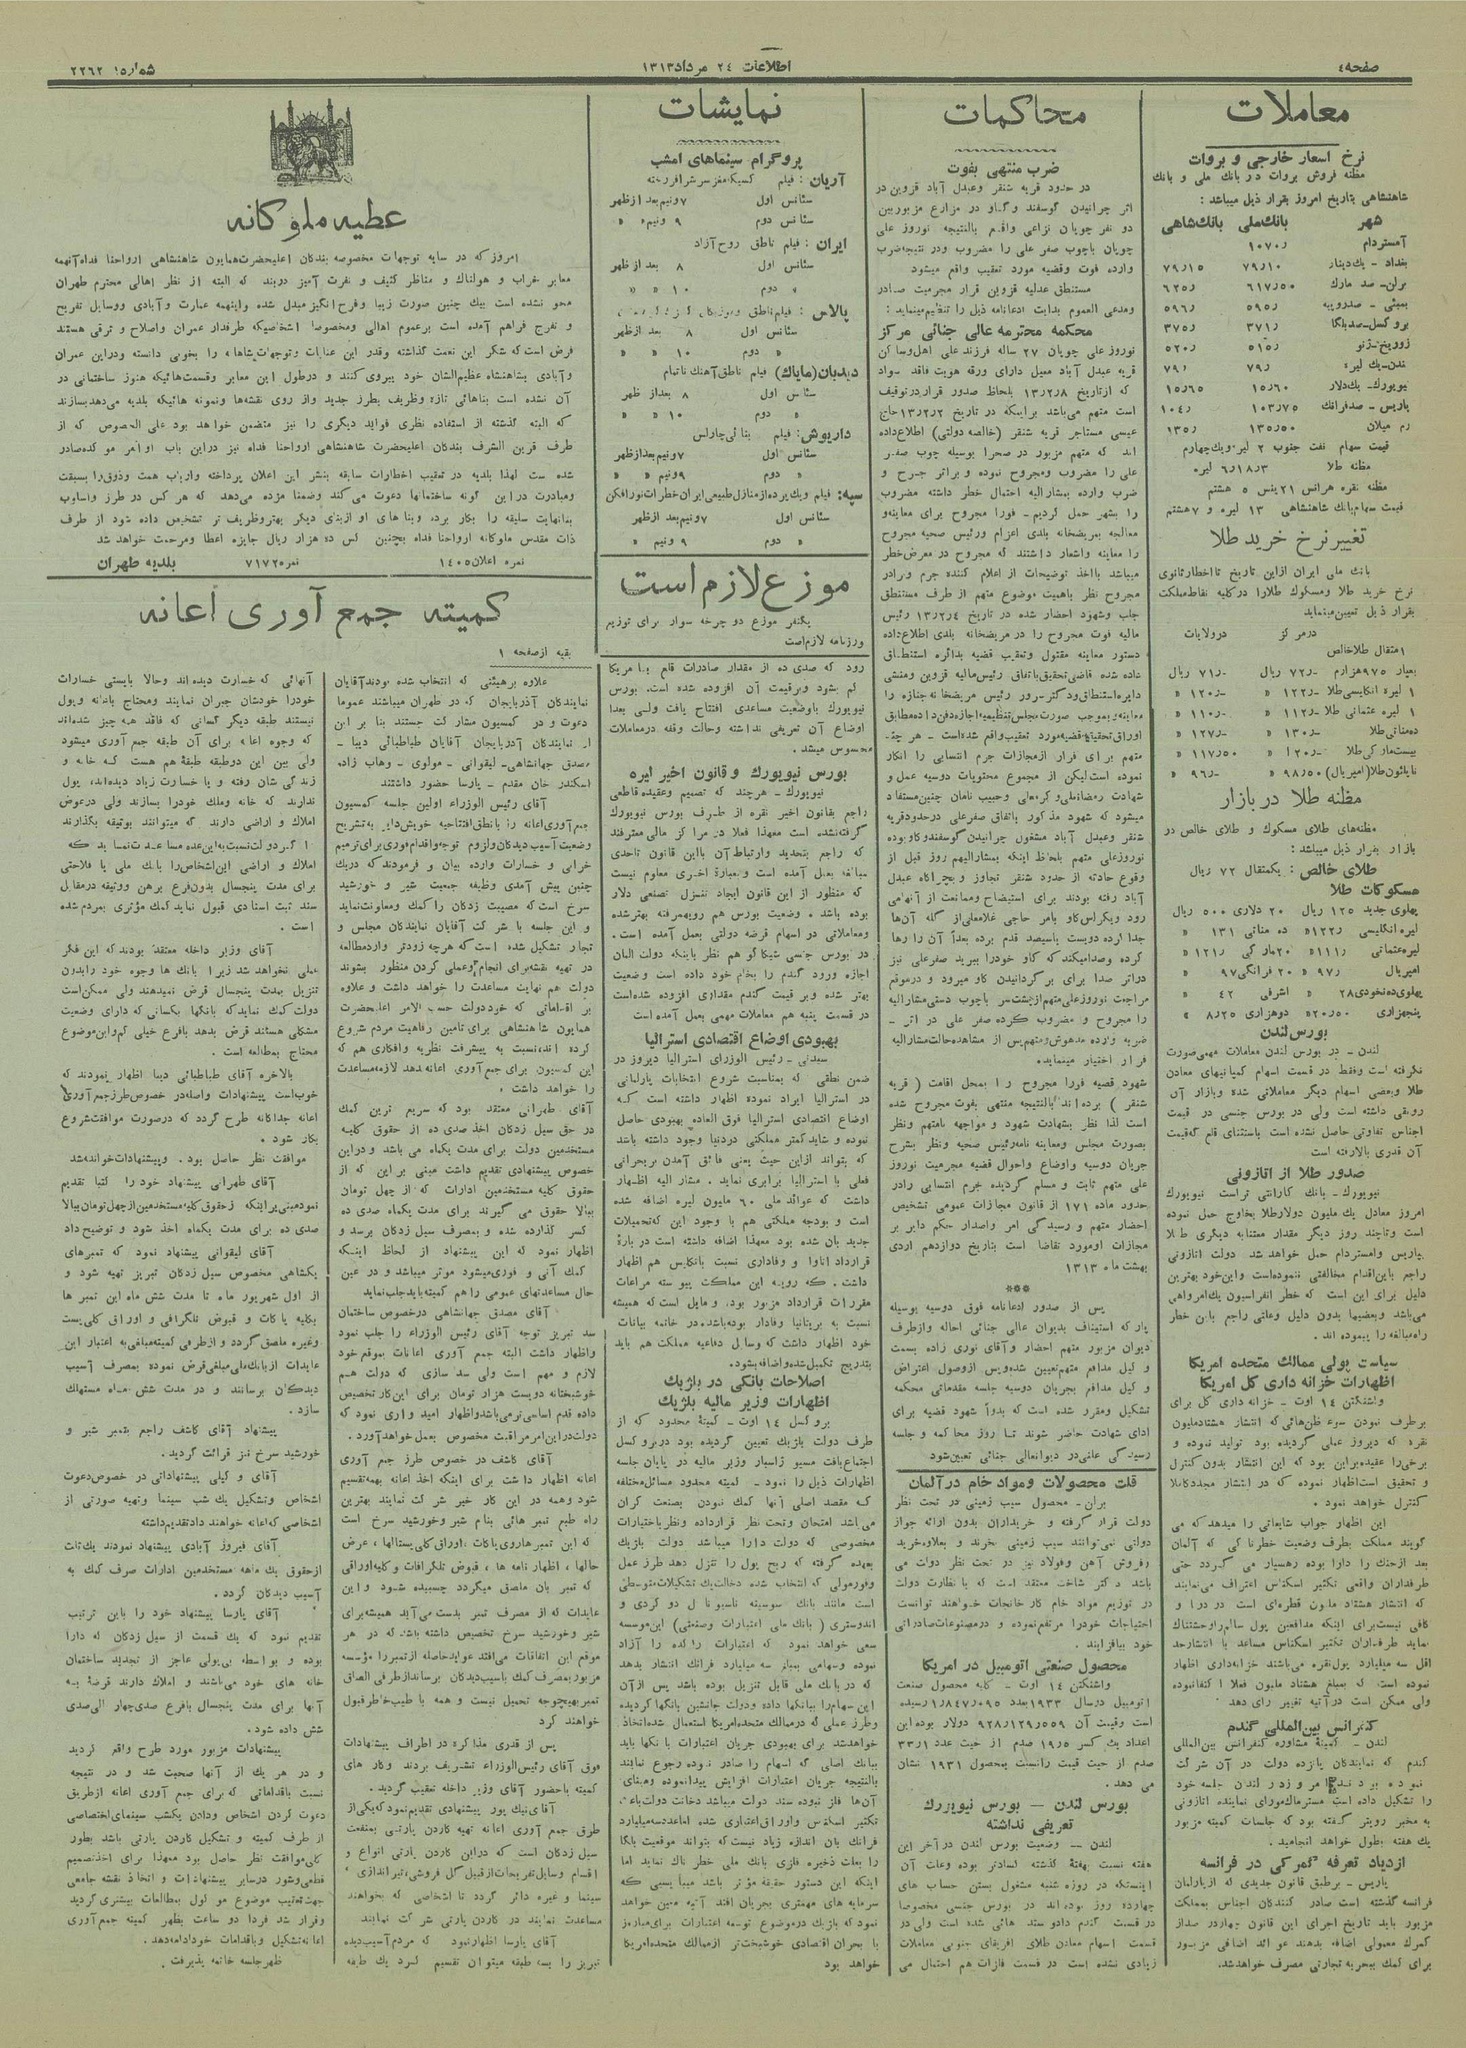 صفحه۴
اطلاعات ۲۴ مرداد ۱۳۱۳
شماره ۲۲۶۲
معاملات
نرخ اسعار خارجی و بروات
مظنه فروش بروات در بانك ملی و بانك
شاهنشاهی بتاریخ امروز بقرار ذیل میباشد :
شهر بانك‌ملی بانك‌شاهی
آمستردام ۱۰۷۰ر
بغداد - یك‌دینار ۷۹ر۱۰ ۷۹ر۱۵
برلن- صد مارك ۶۱۷ر۵۰ ۶۲۵ر
بمبئی - صدروپیه ۵۹۵ر ۵۹۶ر
بروکسل-صدبلگا ۳۷۱ر ۳۷۵ر
زوریخ-ژنو ۵۱۵ر ۵۲۰ر
لندن-یك لیره ۷۹ر ۷۹ر
نیویورك-یك‌دلار ۱۵ر۶۰ ۱۵ر۶۵
پاریس - صدفرانك ۱۰۳ر۷۵ ۱۰۴ر
رم میلان ۱۳۵ر۵۰ ۱۳۵ر
قیمت سهام نفت جنوب ۲ لیره‌ویك‌چهارم
مظنه طلا ۶ر۱۸ر۳ لیره
مظنه نقره هرانس ۲۱پنس ۵ هشتم
قیمت سهام‌بانك شاهنشاهی ۱۳ لیره و ۷هشتم
تغییر نرخ خرید طلا
بانك ملی ایران ازاین تاریخ تااخطارثانوی
نرخ خرید طلا ومسكوك طلارا درکلیه نقاط‌مملكت
بقرار ذیل تعیین‌مینماید
درمرکز درولایات
۱مثقال طلاخالص
بعیار ۹۷۵هزارم ـر۷۲ ریال ـر۷۱ ریال
۱ لیره انگلیسی‌طلا ـر۱۲۲ » ـر۱۲۰ »
۱ لیره عثمانی طلا ـر۱۱۲ » ـر۱۱۰ »
ده‌مناتی‌طلا ـر۱۳۰ » ـر۱۲۷ »
بیست‌مارکی‌طلا ـر۱۲۰ » ۱۱۷ر۵۰ »
ناپلئون‌طلا(امپریال) ۹۸ر۵۰ » ـر۹۶ »
مظنه طلا در بازار
مظنه‌های طلای مسكوك و طلای خالص در
بازار بقرار ذیل میباشد :
طلای خالص : یكمثقال ۷۲ ریال
مسكوکات طلا
پهلوی جدید ۱۲۵ ریال ۲۰ دلاری ۵۰۰ ریال
لیره انگلیسی ۱۲۲ر» ده مناتی ۱۳۱ »
لیره‌عثمانی ۱۱۱ر» ۲۰مارکی ۱۲۱ر »
امپریال ۹۷ر » ۲۰ فرانگی ۹۷ »
پهلوی‌ده‌نخودی۲۸ » اشرفی ۴۲ »
پنجهزاری ۲۰ر۵۰» دوهزاری ۸ر۲۵ »
بورس لندن
لندن - در بورس لندن معاملات مهمی‌صورت
نگرفته است وفقط در قسمت اسهام کمپانیهای معادن
طلا وبعضی اسهام دیگر معاملاتی شده وبازار آن
رونقی داشته است ولی در بورس جنسی در قیمت
اجناس تفاوتی حاصل نشده است باستثنای قلع که‌قیمت
آن قدری بالارفته است
صدور طلا از اتازونی
نیویورك- بانك کارانتی تراست نیویورك
امروز معادل یك ملیون دولارطلا بخارج حمل نموده
است وتاچند روز دیگر مقدار معتنابه دیگری طلا
بپاریس وامستردام حمل خواهد شد. دولت اتازونی
راجع باین‌اقدام مخالفتی ننموده‌است واین‌خود بهترین
دلیل برای این است که خطر انفراسیون یك‌امرواهی
می‌باشد وبعضیها بدون دلیل وعلتی راجع باین خطر
راه‌مبالغه را پیموده اند.
سیاست پولی ممالك متحده امریكا
اظهارات خزانه داری کل امریكا
واشنگتن ۱۴ اوت - خزانه داری کل برای
برطرف نمودن سوء ظن‌هائی‌که انتشار هشتادملیون
نقره که دیروز عملی گردیده بود تولید نموده و
برخی‌را عقیده‌براین بود که این انتشار بدون‌کنترل
و تحقیق است‌اظهار نموده که در انتشار مجددکاملا
کنترل خواهد نمود .
این اظهار جواب شایعاتی را میدهدکه می
گویند مملكت بطرف وضعیت خطرناکی که آلمان
بعد ازجنك را دارا بوده رهسپار می گردد حتی
طرفداران واقعی تكثیر اسكناس اعتراف می‌نمایند
که انتشار هشتاد ملیون قطره‌ای است در دریا و
کافی نیست‌برای اینكه مدافعین پول سالم‌راوحشتناك
نماید طرفداران تكثیر اسكناس مساعد با انتشارحد
اقل سه میلیارد پول‌نقره می‌باشند خزانه‌داری اظهار
نموده است که بمبلغ هشتاد ملیون فعلا اکتفانموده
ولی ممكن است درآتیه تغییر رای دهد .
کنفرانس بین‌المللی گندم
لندن - کمیته مشاوره کنفرانس بین‌المللی
گندم که نمایندگان پانزده دولت در آن شرکت
نموده بودند امروز در لندن جلسه خود
را تشكیل داده است مسترماك‌مورای نماینده اتازونی
به مخبر رویتر گفته بود که جلسات کمیته مزبور
یك هفته بطول خواهد انجامید .
ازدیاد تعرفه گمرکی در فرانسه
پاریس - برطبق قانون جدیدی که ازپارلمان
فرانسه گذشته است صادر کنندگان اجناس بمملكت
مزبور باید تاریخ اجرای این قانون چهاردر صداز
گمرك معمولی اضافه بدهند عوائد اضافی مزبور
برای کمك ببحریه تجارتی مصرف خواهدشد.
محاکمات
ضرب منتهی بفوت
در حدود قریه شنقر وعبدل آباد قزوین در
اثر چرانیدن گوسفند وگاو در مزارع مزبوربین
دو نفر چوپان نزاعی واقع بالنتیجه نوروز علی
چوپان باچوب صفر علی را مضروب ودر نتیجه‌ضرب
وارده فوت وقضیه مورد تعقیب واقع میشود
مستنطق عدلیه قزوین قرار مجرمیت صادر
ومدعی العموم بدایت ادعانامه ذیل را تنظیم‌مینماید :
محكمه محترمه عالی جنائی مرکز
نوروز علی چوپان ۲۷ ساله فرزند علی اهل‌وساکن
قریه عبدل آباد معیل دارای ورقه هویت فاقد سواد
که ازتاریخ ۱۳/۲/۸ بلحاظ صدور قرار در توقیف
است متهم می‌باشد براینكه در تاریخ ۱۳/۲/۲ حاج
عیسی مستاجر قریه شنقر (خالصه دولتی) اطلاع‌داده
اند که متهم مزبور در صحرا بوسیله چوب صفر
علی را مضروب ومجروح نموده و براثر جرح و
ضرب وارده بمشارالیه احتمال خطر داشته مضروب
را بشهر حمل کردیم- فورا مجروح برای معاینه‌و
معالجه بمریضخانه بلدی اعزام ورئیس صحیه مجروح
را معاینه واشعار داشتند که مجروح در معرض‌خطر
میباشد بااخذ توضیحات از اعلام کننده جرم وبرادر
مجروح نظر باهمیت موضوع متهم از طرف مستنطق
جلب وشهود احضار شده در تاریخ ۱۳/۲/۴ رئیس
مالیه فوت مجروح را در مریضخانه بلدی اطلاع‌داده
دستور معاینه مقتول وتعقیب قضیه بدائره استنطاق
داده شده قاضی‌تحقیق‌باتفاق رئیس‌مالیه قزوین ومنشی
دایره‌استنطاق‌ودکتر-رور رئیس مریضخانه جنازه را
معاینه‌وبموجب صورت‌مجلس‌تنظیمیه اجازه‌دفن داده‌مطابق
اوراق‌تحقیق‌قضیه‌مورد تعقیب‌واقع شده‌است - هرچند
متهم برای فرار ازمجازات جرم انتسابی را انكار
نموده است‌لیكن از مجموع محتویات دوسیه عمل و
شهادت رمضانعلی‌وکرمعلی وحبیب نامان چنین‌مستفاد
میشود که شهود مذکور باتفاق صفرعلی درحدودقریه
شنقر وعبدل آباد مشغول چرانیدن گوسفندوگاوبوده
نوروزعلی متهم بلحاظ اینكه بمشارالیهم روز قبل از
وقوع حادثه از حدود شنقر تجاوز وبچراگاه عبدل
آباد رفته بودند برای استیضاح وممانعت از آنهامی
رود ویكراس‌گاو بامر حاجی غلامعلی‌از گله آن‌ها
جدا کرده دویست باسیصد قدم برده بعداً آن را رها
کرده وصدامیكند که گاو خودرا ببرید صفرعلی نیز
دراثر صدا برای برگردانیدن گاو میرود و درموقع
مراجعت نوروزعلی متهم‌ازپشت‌سر باچوب دستی‌مشارالیه
را مجروح و مضروب کرده صفر علی در اثر -
ضربه وارده مدهوش‌ومتهم‌پس از مشاهده‌حالت‌مشارالیه
فرار اختیار مینماید.
شهود قضیه فورا مجروح را بمحل اقامت ( قریه
شنقر ) برده‌اند بالنتیجه منتهی بفوت مجروح شده
است لذا نظر بشهادت شهود و مواجهه بامتهم ونظر
بصورت مجلس ومعاینه نامه‌رئیس صحیه ونظر بشرح
جریان دوسیه واوضاع واحوال قضیه مجرمیت نوروز
علی متهم ثابت و مسلم گردیده جرم انتسابی رادر
حدود ماده ۱۷۱ از قانون مجازات عمومی تشخیص
احضار متهم و رسیدگی امر واصدار حكم دایر بر
مجازات اومورد تقاضا است بتاریخ دوازدهم اردی
بهشت ماه ۱۳۱۳
***
پس از صدور ادعانامه فوق دوسیه بوسیله
پارکه استیناف بدیوان عالی جنائی احاله وازطرف
دیوان مزبور متهم احضار وآقای نوری زاده بسمت
وکیل مدافع متهم‌تعیین شده‌وپس ازوصول اعتراض
وکیل مدافع بجریان دوسیه جلسه مقدماتی محكمه
تشكیل ومقرر شده است که بدواً شهود قضیه برای
ادای شهادت حاضر شوند تا روز محاکمه و جلسه
رسیدگی علنی‌در دیوانعالی جنائی تعیین‌شود
قلت محصولات ومواد خام درآلمان
برلن- محصول سیب زمینی در تحت نظر
دولت قرار گرفته و خریداران بدون ارائه جواز
دولتی نمی‌توانند سیب زمینی بخرند و بعلاوه‌خرید
وفروش آهن وفولاد نیز در تحت نظر دولت می
باشد دکتر شاخت معتقد است که با نظارت دولت
در توزیع مواد خام کارخانجات خواهند توانست
احتیاجات خودرا مرتفع‌نموده و درمصنوعات‌صادراتی
خود بیافزایند .
محصول صنعتی اتومبیل در امریكا
واشنگتن ۱۴ اوت - کلیه محصول صنعت
اتومبیل درسال ۱۹۳۳بعدد ۱ر۸۴۷ر۰۹۵ رسیده
است وقیمت آن ۹۲۸ر۱۲۹ر۵۵۹ دولار بوده این
اعداد یك کسر ۱۹ر۵ صدم از حیث عدد ۳۳ر۱
صدم از حیث قیمت رانسبت بمحصول ۱۹۳۱ نشان
می دهد .
بورس لندن - بورس نیویورك
تعریفی نداشته
لندن - وضعیت بورس لندن درآخر این
هفته نسبت بهفتهٔ گذشته کسادتر بوده وعلت آن
اینستكه در روزه شنبه مشغول بستن حساب های
چهارده روز بوده‌اند در بورس جنسی مخصوصا
در قسمت گندم دادوستد هائی شده است ولی در
قسمت اسهام معادن طلای افریقای جنوبی معاملات
زیادی نشده است در قسمت فلزات هم احتمال می
نمایشات
پروگرام سینماهای امشب
آریان : فیلم
سئانس اول ۷ونیم‌بعد ازظهر
سئانس دوم ۹ ونیم» »
ایران : فیلم ناطق روح‌آزاد
سئانس اول ۸ بعد ازظهر
» دوم ۱۰ » »
پالاس : فیلم‌ناطق
سئانس اول ۸ بعد ازظهر
» دوم ۱۰ » »
دیدبان(مایاك) فیلم ناطق‌آهنك ناتمام
سئانس اول ۸ بعداز ظهر
» دوم ۱۰ » »
داریوش: فیلم
سئانس اول ۷ونیم‌بعدازظهر
» دوم ۹ونیم » »
سپه: فیلم ویك‌پرده‌ازمنازل‌طبیعی ایران خطرات‌نورافكن
سئانس اول ۷ونیم‌بعد ازظهر
» دوم ۹ ونیم » »
موزع لازم است
یكنفر موزع دو چرخه سوار برای توزیع
روزنامه لازم‌است
رود که صدی ده از مقدار صادرات قلع بامریكا
کم بشود وبرقیمت آن افزوده شده است. بورس
نیویورك باوضعیت مساعدی افتتاح یافت ولی بعدا
اوضاع آن تعریفی نداشته وحالت وقفه درمعاملات
محسوس میشد.
بورس نیویورك و قانون اخیر لیره
نیویورك - هرچند که تصمیم وعقیده قاطعی
راجع بقانون اخیر نقره از طرف بورس نیویورك
گرفته‌نشده است معهذا فعلا در مراکز مالی معترفند
که راجع بتحدید وارتباط آن بااین قانون تاحدی
مبالغه بعمل آمده است وبعبارة اخری معلوم نیست
که منظور از این قانون ایجاد تنزل تصنعی دلار
بوده باشد. وضعیت بورس هم رویهمرفته بهترشده
ومعاملاتی در اسهام قرضه دولتی بعمل آمده است.
در بورس جنسی شیكاگو هم نظر باینكه دولت آلمان
اجازه ورود گندم را بخاك خود داده است وضعیت
بهتر شده وبر قیمت گندم مقداری افزوده شده‌است
در قسمت پنبه هم معاملات مهمی بعمل آمده است
بهبودی اوضاع اقتصادی استرالیا
سیدنی- رئیس الوزرای استرالیا دیروز در
ضمن نطقی که بمناسبت شروع انتخابات پارلمانی
در استرالیا ایراد نموده اظهار داشته است که
اوضاع اقتصادی استرالیا فوق العاده بهبودی حاصل
نموده و شاید کمتر مملكتی دردنیا وجود داشته باشد
که بتواند ازاین حیث یعنی فائق آمدن بربحرانی
فعلی با استرالیا برابری نماید. مشار الیه اظهار
داشت که عوائد ملی ۶۰ ملیون لیره اضافه شده
است و بودجه مملكتی هم با وجود این که‌تحمیلات
جدید بان شده بود معهذا اضافه داشته است در بارهٔ
قرارداد اتاوا و وفاداری نسبت بانگلیس هم اظهار
داشت. که رویه این مملكت پیوسته مراعات
مقررات قرارداد مزبور بود. و مایل است که همیشه
نسبت به بریتانیا وفادار بوده‌باشد. در خاتمه بیانات
خود اظهار داشت که وسائل دفاعیه مملكت هم باید
بتدریج تكمیل‌شده‌واضافه‌بشود.
اصلاحات بانكی در بلژیك
اظهارات وزیر مالیه بلژیك
بروکسل ۱۴ اوت - کمیتهٔ محدود که از
طرف دولت بلژیك تعیین گردیده بود دربروکسل
اجتماع‌یافت مسیو ژاسپار وزیر مالیه در پایان جلسه
اظهارات ذیل را نمود - کمیته محدود مسائل‌مختلفه
که مقصد اصلی آنها کمك نمودن بصنعت گران
می‌باشد امتحان وتحت نظر قرارداده ونظر باختیارات
مخصوصی که دولت دارا میباشد دولت بلژیك
بعهده گرفته که ربح پول را تنزل دهد طرز عمل
وفورمولی که انتخاب شده دخالت‌یك تشكیلات‌متوسطی
است مانند بانك سوسیته ناسیونال دو کردی و
اندوستری ( بانك ملی اعتبارات وصنعتی) این‌موسسه
سعی خواهد نمود که اعتبارات راکده را آزاد
نموده وسهامی بمبلغ سه میلیارد فرانك انتشار بدهد
که دربانك ملی قابل تنزیل بوده باشد پس ازآن
این سهام‌را ببانكها داده ودولت جانشین بانكها گردیده
وطرز عملی که درممالك متحده‌امریكا استعمال شده‌اتخاذ
خواهدشد برای بهبودی جریان اعتبارات بانكها باید
ببانك اصلی که اسهام را صادر نموده رجوع نمایند
بالنتیجه جریان اعتبارات افزایش پیدانموده ومبنای
آن‌ها فلز نبوده سند دولت میباشد دخالت دولت‌باعث
تكثیر اسكناس واوراق‌اعتباری شده اماعددسه‌میلیارد
فرانك بان اندازه زیاد نیست که بتواند موقعیت بلگا
را بعلت ذخیره فلزی بانك ملی خطر ناك نماید اما
اینكه این دستور حقیقه مؤثر باشد میبایستی که
سرمایه های مهمتری بجریان افتد آتیه معین خواهد
نمود که بلژیك درموضوع توسعه اعتبارات برای‌مبارزه
با بحران اقتصادی خوشبخت‌تر ازممالك متحده‌امریكا
خواهد بود
عطیه ملوکانه
امروز که در سایه توجهات مخصوصه بندگان اعلیحضرت‌همایون شاهنشاهی ارواحنا فداه‌آنهمه
معابر خراب و هولناك و مناظر کثیف و نفرت آمیز دیدند که البته از نظر اهالی محترم طهران
محو نشده است بیك چنین صورت زیبا وفرح انگیز مبدل شده واینهمه عمارت وآبادی ووسایل تفریح
و تفرج فراهم آمده است برعموم اهالی ومخصوصا اشخاصیكه طرفدار عمران واصلاح و ترقی هستند
فرض است‌که شكر این نعمت گذاشته وقدر این عنایات وتوجهات‌شاهانه را بخوبی دانسته ودراین عمران
و آبادی بشاهنشاه عظیم‌الشان خود پیروی‌کنند و درطول این معابر وقسمت‌هائیكه هنوز ساختمانی در
آن نشده است بناهائی تازه وظریف بطرز جدید واز روی نقشه‌ها ونمونه هائیكه بلدیه می‌دهدبسازند
که البته گذشته از استفاده نظری فواید دیگری را نیز متضمن خواهد بود علی الخصوص که از
طرف قرین الشرف بندگان اعلیحضرت شاهنشاهی ارواحنا فداه نیز دراین باب اوامر موکده‌صادر
شده است لهذا بلدیه در تعقیب اخطارات سابقه بنشر این اعلان پرداخته وارباب همت وذوق‌را بسبقت
ومبادرت دراین گونه ساختمانها دعوت می کند وضمنا مژده می‌دهد که هرکس در طرز واسلوب
بنانهایت سلیقه را بكار برده وبناهای او ازبنای دیگر بهتروظریف تر تشخیص داده شود از طرف
ذات مقدس ملوکانه ارواحنا فداه بچنین کس ده هزار ریال جایزه اعطا ومرحمت خواهد شد
نمره اعلان۱۴۰۵ نمره ۷۱۷۲ بلدیه طهران
کمیته جمع آوری اعانه
بقیه ازصفحه ۱
علاوه برهیئتی که انتخاب شده بودندآقایان
نمایندگان آذربایجان که در طهران میباشند عموما
دعوت و در کمسیون مشارکت جستند بنا بر این
از نمایندگان آذربایجان آقایان طباطبائی دیبا -
مصدق جهانشاهی- لیقوانی - مولوی - وهاب زاده
اسكندر خان مقدم - پارسا حضور داشتند
آقای رئیس الوزراء اولین جلسه کمسیون
جمع‌آوری‌اعانه را بانطق‌افتتاحیه خویش‌دایر به‌تشریح
وضعیت‌آسیب دیدگان ولزوم توجه‌واقدام فوری‌برای‌ترمیم
خرابی و خسارات وارده بیان و فرمودند که دریك
چنین پیش آمدی وظیفه جمعیت شیر و خورشید
سرخ است‌که مصیبت زدگان راکمك ومعاونت‌نماید
و این جلسه با شرکت آقایان نمایندگان مجلس و
تجار تشكیل شده است‌که هرچه زودتر واردمطالعه
در تهیه نقشه‌برای انجام وعملی کردن منظور بشوند
دولت هم نهایت مساعدت را خواهد داشت و علاوه
بر اقداماتی که خوددولت حسب الامر اعلیحضرت
همایون شاهنشاهی برای تامین رفاهیت مردم شروع
کرده اند،نسبت به پیشرفت نظریه وافكاری هم که
این کمسیون برای جمع‌آوری اعانه بدهد لازمه‌مساعدت
را خواهد داشت .
آقای طهرانی معتقد بود که سریع ترین کمك
در حق سیل زدگان اخذ صدی ده از حقوق کلیه
مستخدمین دولت برای مدت یكماه می باشد ودراین
خصوص پیشنهادی تقدیم داشت مبنی بر این که از
حقوق کلیه مستخدمین ادارات که از چهل تومان
ببالا حقوق می گیرند برای مدت یكماه صدی ده
کسر گذارده شده و بمصرف سیل زدگان برسد و
اظهار نمود که این پیشنهاد از لحاظ اینكه
کمك آنی و فوری‌میشود موثر میباشد و در عین
حال مساعدتهای عمومی راهم کمیته‌باید جلب‌نماید
آقای مصدق جهانشاهی درخصوص ساختمان
سد تبریز توجه آقای رئیس الوزراء را جلب نمود
واظهار داشت البته جمع آوری اعانات بموقع خود
لازم و مهم است ولی سد سازی که دولت هم
خوشبختانه دویست هزار تومان برای این‌کار تخصیص
داده قدم اساسی‌تر می‌باشدواظهار امید واری نمود که
دولت‌دراین‌امر مراقبت مخصوص بعمل خواهدآورد .
آقای کاشف در خصوص طرز جمع آوری
اعانه اظهار داشت برای اینكه اخذ اعانه بهمه‌تقسیم
شود وهمه در این کار خیر شرکت نمایند بهترین
راه طبع تمبر هائی بنام شیر وخورشید سرخ است
که این تمبرهاروی‌پاکات ،اوراق‌کلی‌پستالها ، عرض
حالها ، اظهار نامه ها ، قبوض تلگرافات و کلیه‌اوراقی
که تمبر بان ملصق میگردد چسبیده شود و این
عایدات که از مصرف تمبر بدست می‌آید همیشه‌برای
شیر وخورشید سرخ تخصیص داشته باشد که در هر
موقع این اتفاقات می‌افتد عوایدحاصله از تمبررا مؤسسه
مزبور بمصرف کمك باسیب‌دیدگان برساندازطرفی‌الصاق
تمبر بهیچوجه تحمیل نیست و همه با طیب خاطرقبول
خواهند کرد
پس از قدری مذاکره در اطراف پیشنهادات
فوق آقای رئیس‌الوزراء تشریف بردند وکارهای
کمیته باحضور آقای وزیر داخله تعقیب گردید.
آقای‌نیك پور پیشنهادی تقدیم‌نمودکه‌یكی‌از
طرق جمع آوری اعانه تهیه گاردن پارتی بمنفعت
سیل زدگان است که دراین گاردن پارتی انواع و
اقسام وسایل‌تفریحات‌ازقبیل گل فروشی،تیراندازی ،
سینما و غیره دائر گردد تا اشخاصی که بخواهند
مساعدت نمایند در گاردن پارتی شرکت نمایند
آقای پارسا اظهارنمود که مردم‌آسیب‌دیده
تبریز را بسه طبقه میتوان تقسیم کرد یك طبقه
آنهائی که خسارت دیده‌اند وحالا بایستی خسارات
خودرا خودشان جبران نمایند ومحتاج باعانه وپول
نیستند طبقه دیگر کسانی که فاقد همه چیز شده‌اند
که وجوه اعانه برای آن طبقه جمع آوری میشود
ولی بین این دوطبقه طبقهٔ هم هست که خانه و
زندگی شان رفته و یا خسارت زیاد دیده‌اند، پول
ندارند که خانه وملك خودرا بسازند ولی درعوض
املاك و اراضی دارند که میتوانند بوثیقه بگذارند
اگر دولت‌نسبت‌به‌این‌عده مساعدت نماید که
املاك و اراضی این‌اشخاص‌را بانك ملی یا فلاحتی
برای مدت پنجسال بدون‌فرع برهن ووثیقه درمقابل
سند ثبت اسنادی قبول نماید کمك مؤثری بمردم شده
است .
آقای وزیر داخله معتقد بودندکه این فكر
عملی نخواهدشد زیرا بانك ها وجوه خود رابدون
تنزیل بمدت پنجسال قرض نمیدهند ولی ممكن‌است
دولت کمك نمایدکه بانكها بكسانی که دارای وضعیت
مشكلی هستند قرض بدهد بافرع خیلی کم‌واین‌موضوع
محتاج بمطالعه است .
بالاخره آقای طباطبائی دیبا اظهار نمودند که
خوب‌است پیشنهادات واصله‌در خصوص‌طرزجمع‌آوری
اعانه جداگانه طرح گردد که درصورت موافقت‌شروع
بكار شود .
موافقت نظر حاصل بود. وپیشنهادات‌خوانده‌شد
آقای طهرانی پیشنهاد خود را کتبا تقدیم
نمودمبنی‌براینكه ازحقوق‌کلیه‌مستخدمین‌ازچهل‌تومان‌ببالا
صدی ده برای مدت یكماه اخذ شود و توضیح‌داد
آقای لیقوانی پیشنهاد نمود که تمبرهای
یكشاهی مخصوص سیل زدگان تبریز تهیه شود و
از اول شهریور ماه تا مدت شش ماه این تمبرها
بكلیه پاکات و قبوض تلگرافی و اوراق کلی‌پست
وغیره ملصق گردد وازطرفی کمیته‌مبلغی به اعتبار این
عایدات ازبانك‌ملی‌مبلغی‌قرض نموده بمصرف آسیب
دیدگان برسانند و در مدت شش ماه مستهلك
سازد.
پیشنهاد آقای کاشف راجع بتمبر شیر و
خورشید سرخ نیز قرائت گردید.
آقای وکیلی پیشنهاداتی در خصوص‌دعوت
اشخاص وتشكیل یك شب سینما وتهیه صورتی از
اشخاصی که‌اعانه خواهند دادتقدیم‌داشته
آقای فیروز آبادی پیشنهاد نمودند یك‌ثلث
ازحقوق یك ماهه مستخدمین ادارات صرف کمك به
آسیب دیدگان گردد.
آقای پارسا پیشنهاد خود را باین ترتیب
تقدیم نمود که یك قسمت از سیل زدگان که دارا
بوده و بواسطه بی‌پولی عاجز از تجدید ساختمان
خانه های خود می‌باشند و املاك دارند قرضه به
آنها برای مدت پنجسال بافرع صدی‌چهار الی‌صدی
شش داده شود.
پیشنهادات مزبور مورد طرح واقع گردید
و در هریك از آنها صحبت شد و در نتیجه
نسبت باقداماتی که برای جمع آوری اعانه ازطریق
دعوت کردن اشخاص ودادن یكشب سینمای‌اختصاصی
از طرف کمیته و تشكیل گاردن پارتی باشد بطور
کلی‌موافقت نظر حاصل بود معهذا برای اخذتصمیم
قطعی‌وشور درسایر پیشنهادات و اتخاذ نقشه جامعی
جهت‌تعقیب موضوع موکول بمطالعات بیشتری گردید
وقرار شد فردا دو ساعت بظهر کمیته جمع‌آوری
اعانه‌تشكیل وباقدامات خودادامه‌دهد.
ظهر جلسه خاتمه پذیرفت .